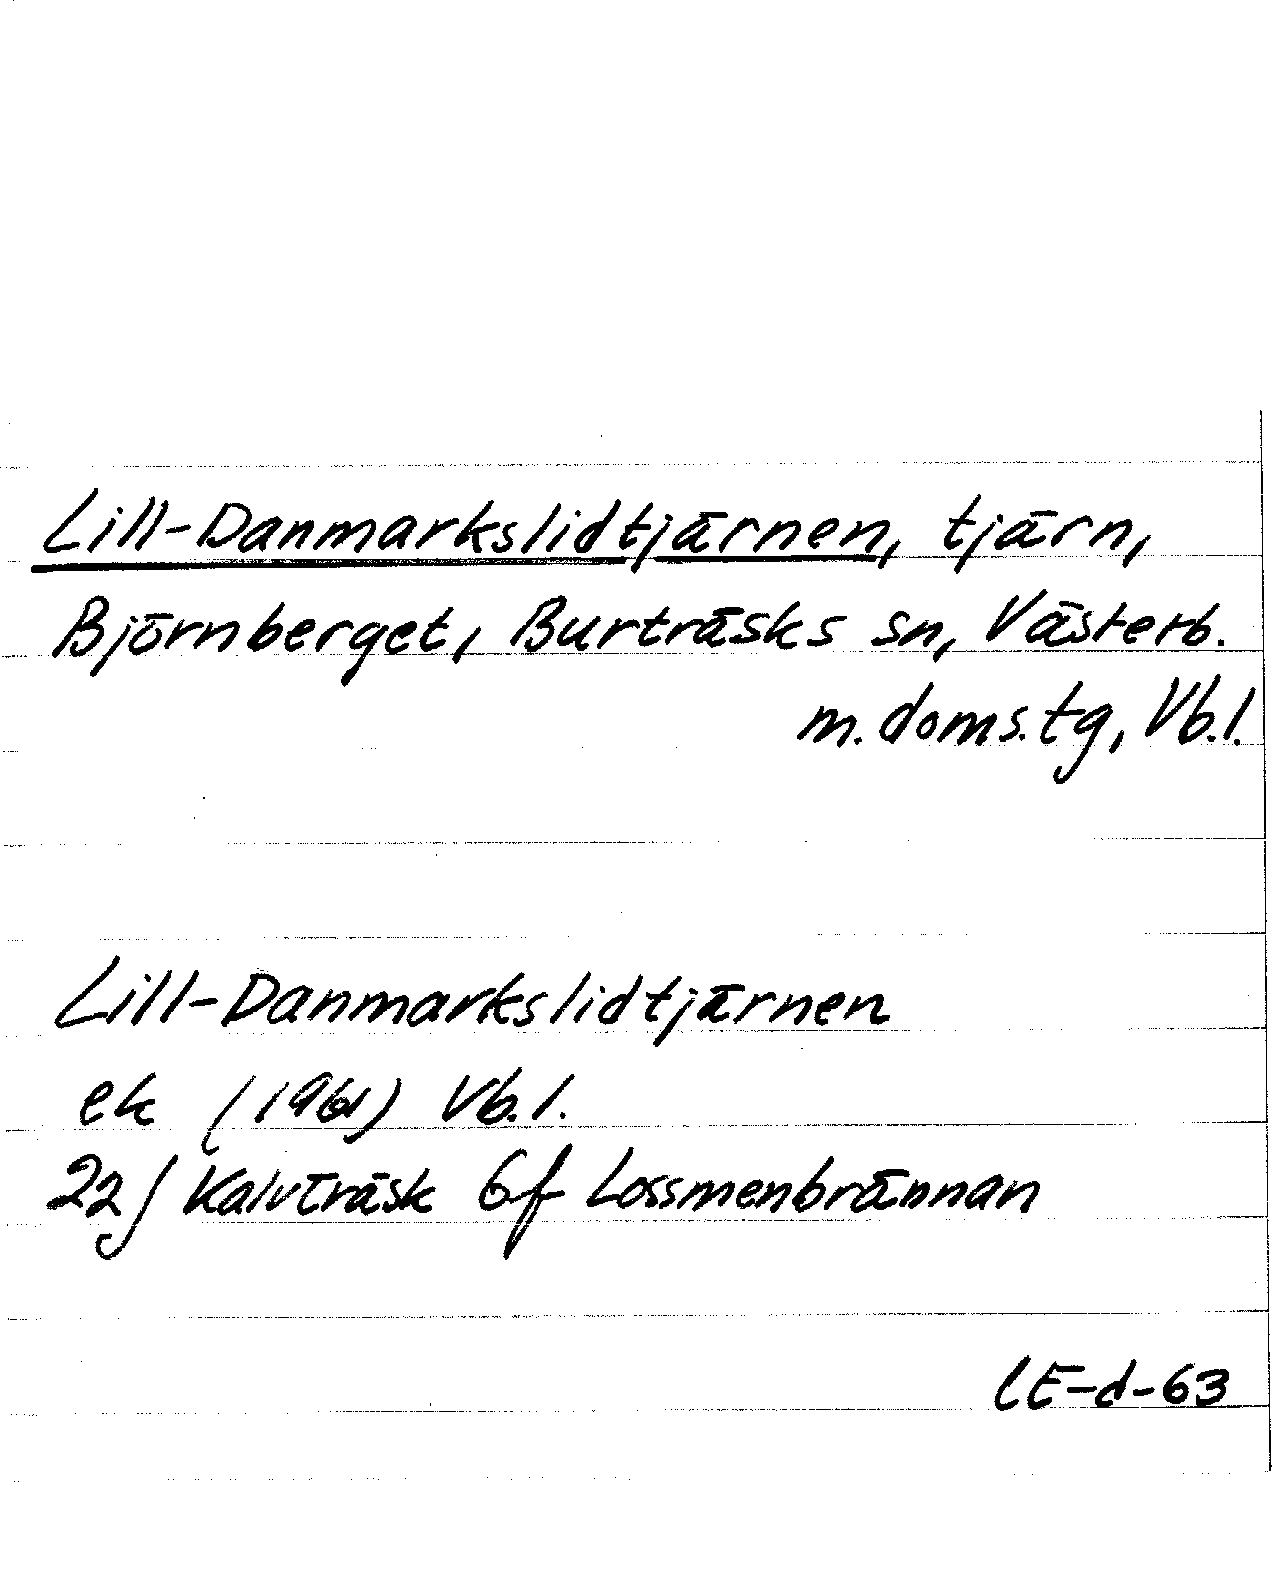 Lill-Danmarkslidtjärnen, tjärn,
Björnberget, Burträsks sn, Västerb.
m. doms.tg, Vb.l.
Lill-Danmarkslidtjärnen
ek (1961) Vb.l.
22J Kalvträsk 6f Lossmenbrännan
LE-d-63